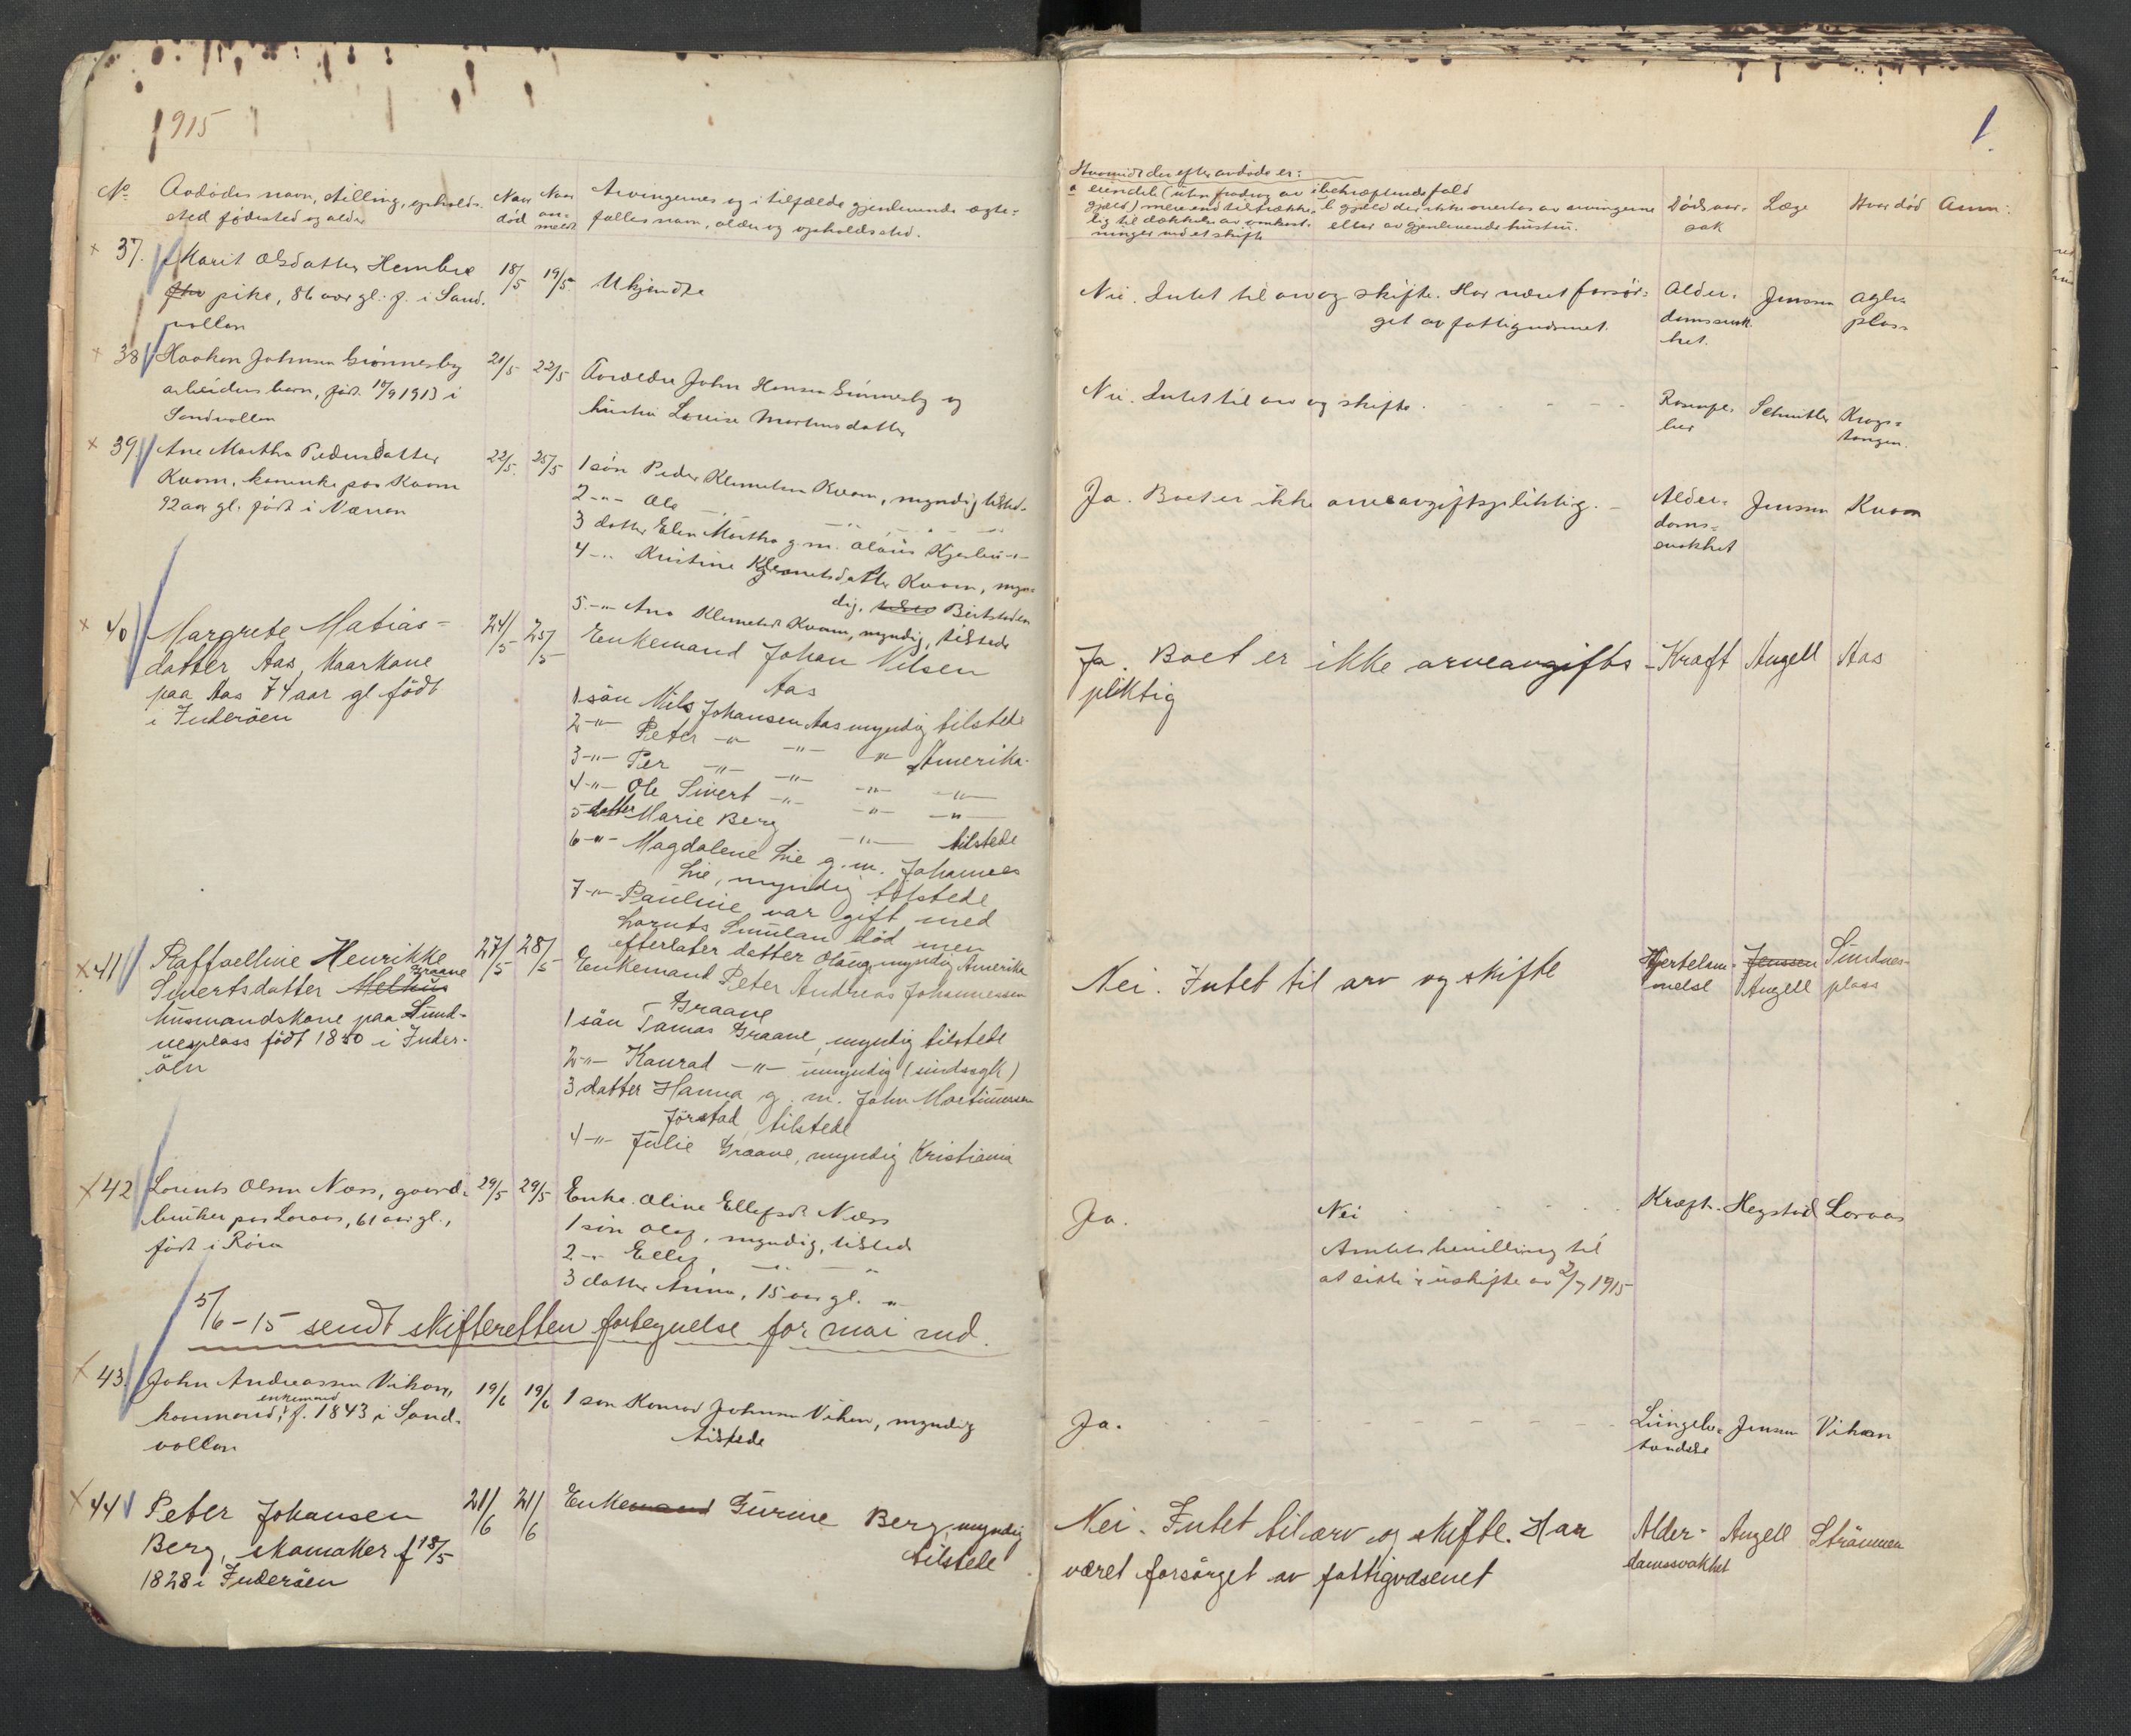 1915
1.
No Avdødes navn, stilling, opholds-
sted fødested og alder
Naar død
Naar anmeldt
Arvingernes og i tilfælde gjenlevende ægte-
fælles navn, alder og opholdssted.
Hvorvidt der efter avdøde er:
a eiendele (uten fradrag av
gjæld) mere end tilstrække-
lig til dækkelse av omkost-
ninger ved et skifte
i bekræftende fald
b gjæld der ikke overtas av arvingerne
eller av gjenlevende hustru.
Dødsaar-
sak
Læge
Hvor død
Anm:
37. Marit Olsdatter Hembre
pike, 86 aar gl. f. i Sand-
vollan
18/5 19/5 Ukjendte
Nei. Intet til arv og skifte. Har været forsør-
get av fattigvæsenet.
Alder-
domssvak-
het.
Jenssen
Agle
plas
38 Haakon Johnsen Grønnesby
arbeiders barn, født 10/9 1913 i
Sandvollan
21/5 22/5 Forældre John Hansen Grønnesby og
hustru Louise Martinsdatter
Nei. Intet til arv og skifte.
Schmitler
Krogs-
tangen.
39. Ane Martha Pedersdatter
Kvam, kaarenke paa Kvam
92 aar gl. født i Værran
22/5. 25/5 1 søn Peder Klemetsen Kvam, myndig tilsted.
2 -"- Ole -"-
3 datter Elen Martha g. m. Olaus Kjerbu -"-
4 -"- Kristine Klemetsdatter Kvam, myn-
dig, Beitstaden
5. -"- Ana Klemetsd. Kvam, myndig, tilstede
Ja. Boet er ikke arveavgiftspliktig.
Alder-
doms-
svakhet
Jenssen
Kvam
40 Margrete Matias-
datter Aas, kaarkone
paa Aas 74 aar gl født
i Inderøen
24/5 25/5 Enkemand Johan Nilsen
Aas
1 søn Nils Johansen Aas myndig tilstede
2 -"- Peter -"- -"- -"- Amerika.
3 -"- Per -"- -"- -"- -"-
4 -"- Ole Sivert -"- -"- -"-
5 datter Marie Berg -"- tilstede
6 -"- Magdalene Lie g. m. Johannes
Lie, myndig tilstede
7 -"- Pauline var gift med
Lornts Smulan død men
efterlater datter Olaug, myndig Amerika
Ja. Boet er ikke arveavgifts-
pliktig
Kræft
Angell
Aas
41 Raffaelline Henrikke
Sivertsdatter Melhus Graane
husmandskone paa Sund-
nesplass født 1850 i Inder-
øen
27/5 28/5 Enkemand Peter Andreas Johannessen
Graane
1 søn Tamas Graane, myndig tilstede
2 -"- Konrad -"- umyndig (sindssyk)
3 datter Hanna g. m. John Martinussen
Jørstad, tilstede
4 -"- Julie Graane, myndig Kristiania
Nei. Intet til arv og skifte
Hjertelam-
melse
Jenssen
Angell
Sundnes-
plass
42 Lornts Olsen Næss, gaard-
bruker paa Loraas, 61 aar gl.,
født i Røra
29/5 29/5 Enke Oline Ellefsd. Næss
1 søn Olaf, myndig, tilstede
2 -"- Ellef -"- -"-
3 datter Anna, 15 aar gl. -"-
Ja. Nei
Amtets bevilling til
at sitte i uskifte av 2/7 1915
Kræft.
Hegstad
Loraas
5/6-15 sendt skifteretten fortegnelse for mai md.
43. John Andreassen Vikan,
kaarmand, enkemand, f. 1843 i Sand-
vollan
19/6 19/6 1 søn Konrad Johnsen Vikan, myndig
tilstede
Ja.
Lungebe-
tændelse
Jenssen
Vikan
44 Peter Johansen
Berg, skomaker f 18/5
1828 i Inderøen
21/6 21/6 Enkemand Gurine Berg, myndig
tilstede
Nei. Intet til arv og skifte. Har
været forsørget av fattigvæsenet
Alder-
domssvakhet
Angell
Strømmen